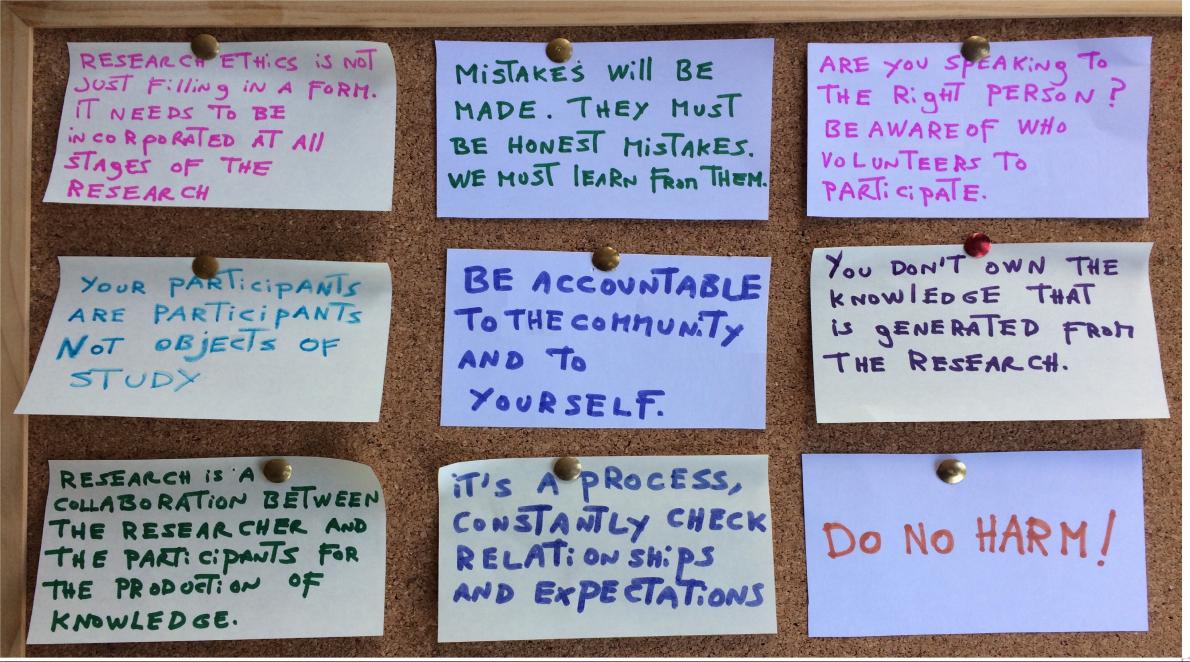 RESEARCH ETHICS IS NOT
JUST Filling IN A FORM.
IT NEEDS TO BE
iNCORPORATED AT All
STAGES OF THE
RESEARCH
MiSTAKES Will BE
MADE. THEY MUST
BE HONEST MiSTAKES.
WE MUST lEARN FROM THEM.
ARE YOU SPEAKing TO
THE Right PERSON?
BE AWARE OF WHO
VOLUNTEERS TO
PARTiCiPATE.
YOUR PARTiCiPANTS
ARE PARTiCiPANTS
NOT OBjECTS OF
STUDY
BE ACCOUNTABLE
TO THE COMMUNiTY
AND TO
YOURSELF.
YOU DON'T OWN THE
KNOWlEDGE THAT
iS gENERATED FROM
THE RESEARCH.
RESEARCH iS A
COLLABORATiON BETWEEN
THE RESEARCHER AND
THE PARTiCiPANTS FOR
THE PRODUCTiON OF
KNOWLEDGE.
iT'S A PROCESS,
CONSTANTLY CHECK
RELATiONSHiPS
AND EXPECTATiONS
DO NO HARM!